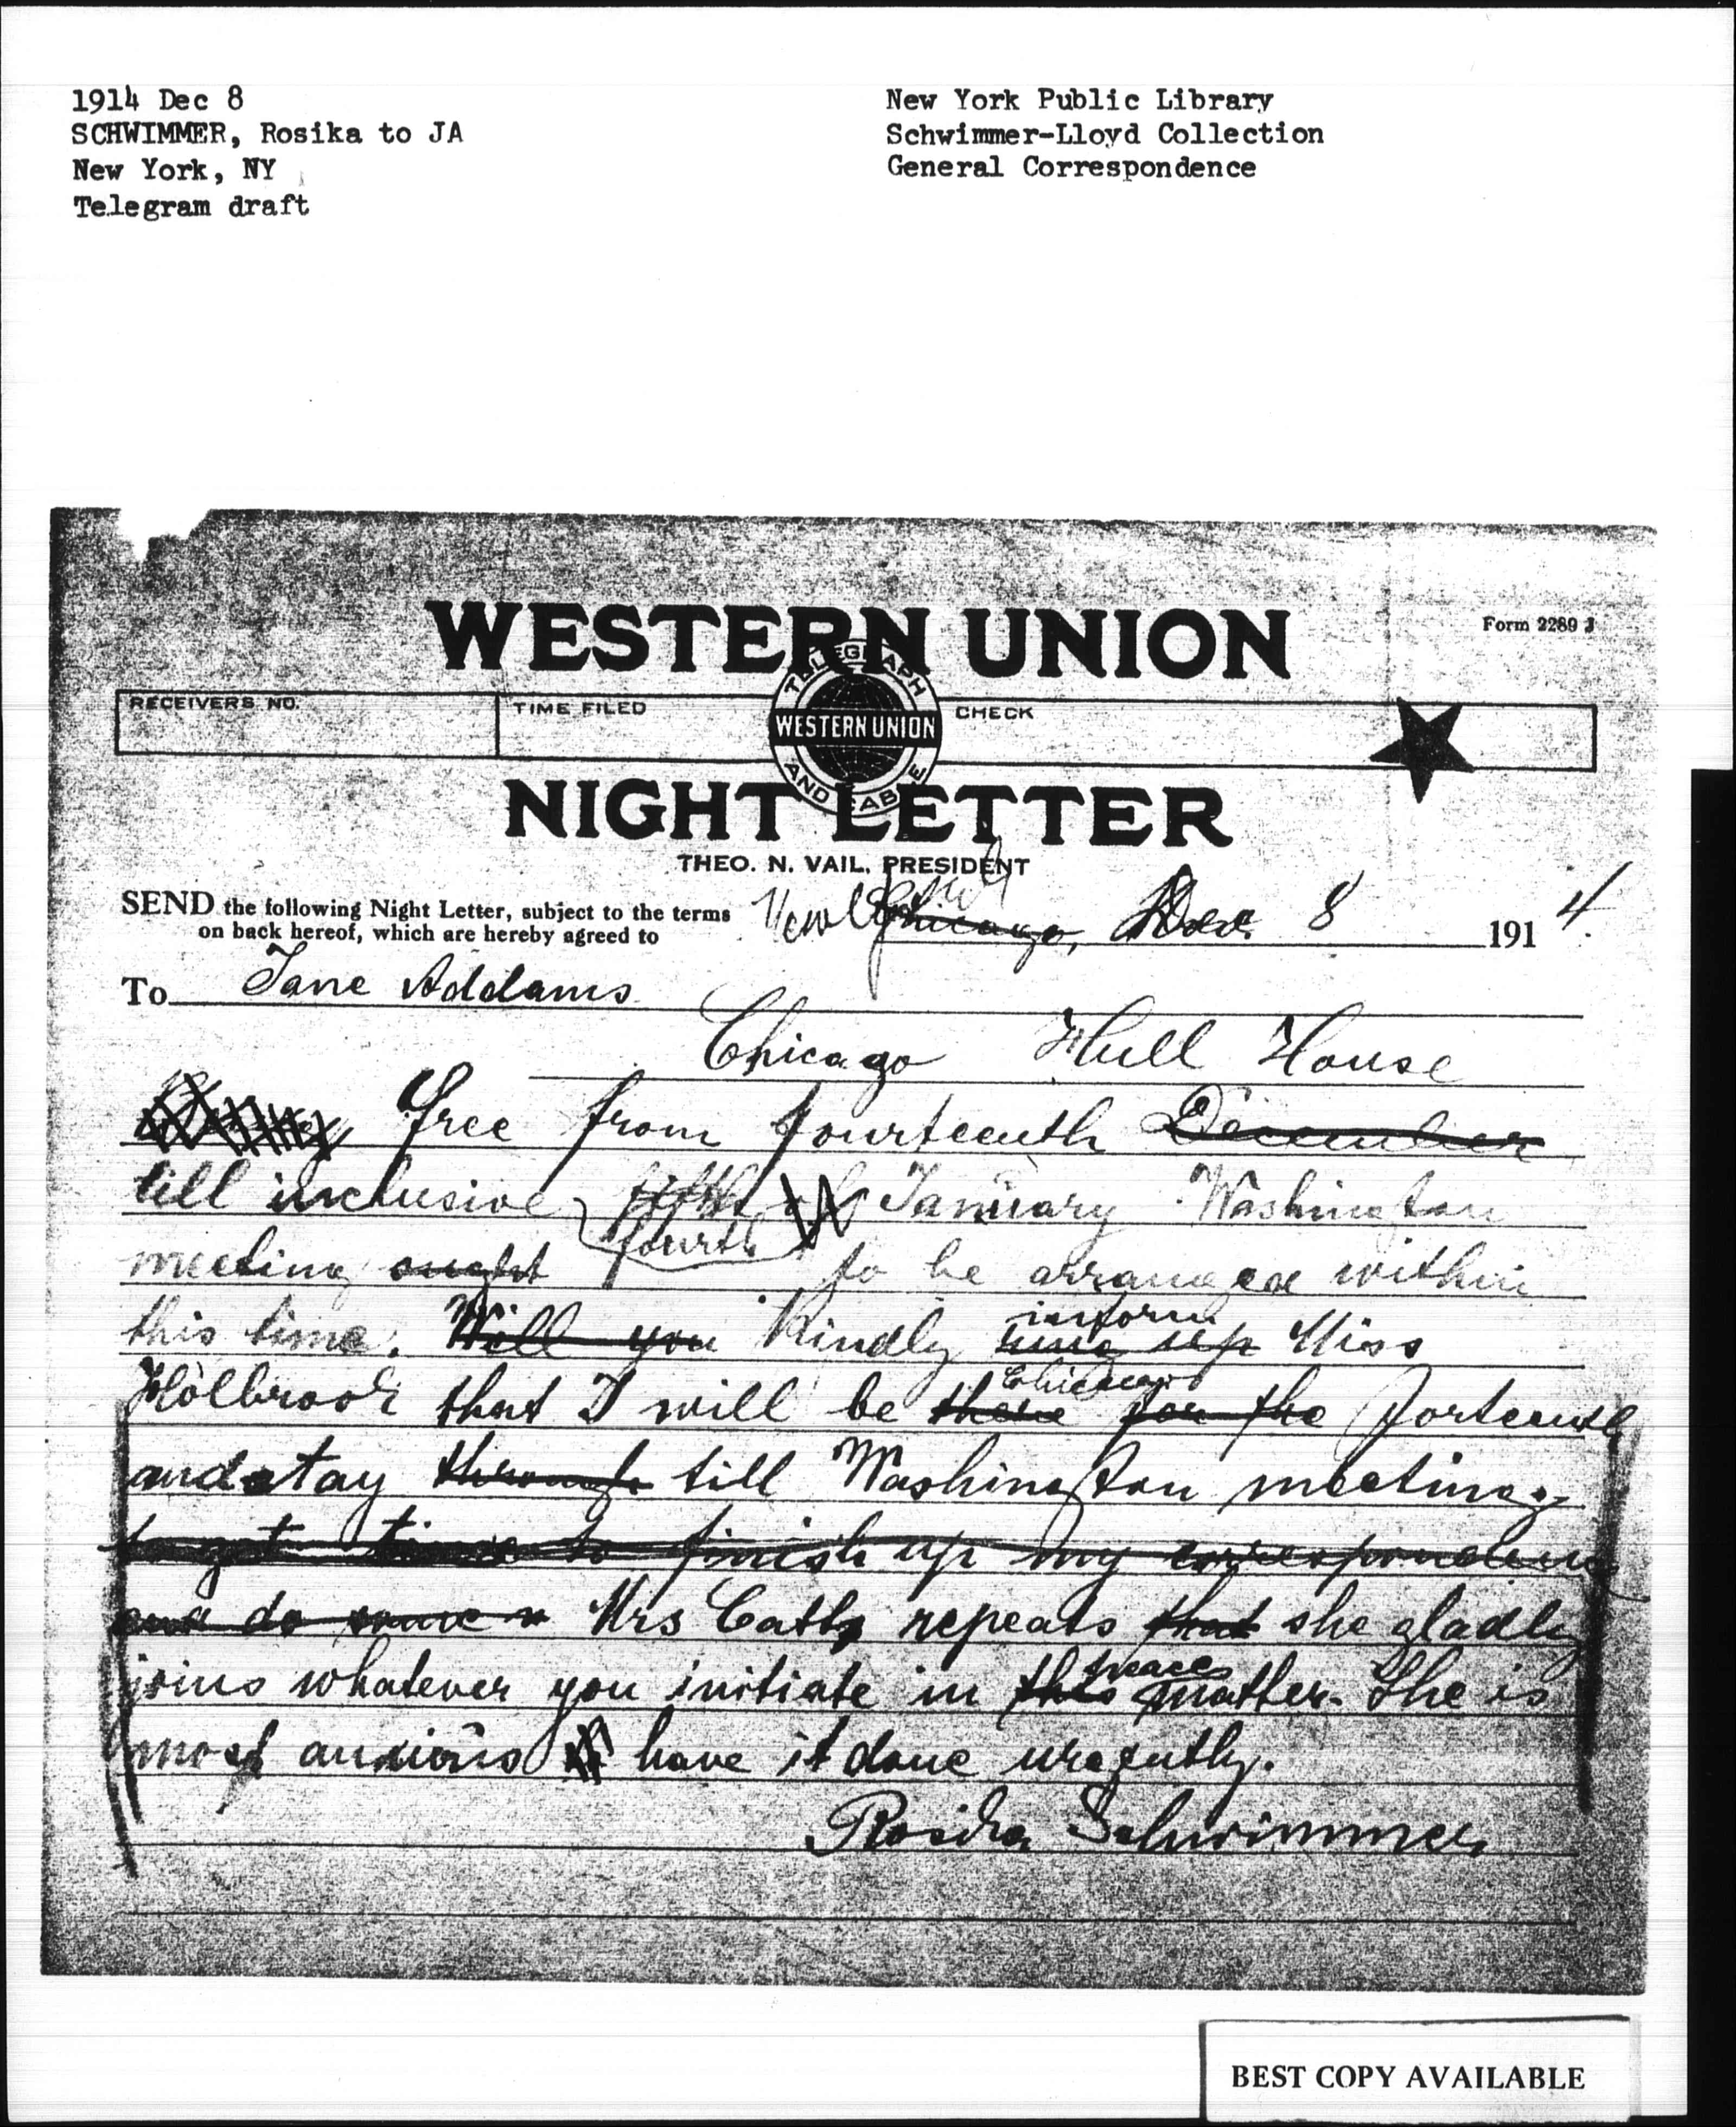 1914 Dec 8
SCHWIMMER, Rosika to JA
New York, NY
Telegram draft
New York Public Library
Schwimmer-Lloyd Collection
General Correspondence
WESTERN UNION
Form 2289 J
RECEIVERS NO.
TIME FILED
CHECK
TELEGRAPH
WESTERN UNION
AND CABLE
NIGHT LETTER
THEO. N. VAIL, PRESIDENT
SEND the following Night Letter, subject to the terms
on back hereof, which are hereby agreed to
New York Chicago, Dec. 8 1914.
To Jane Addams
Chicago Hull House
Free from fourteenth December
till inclusive fifth of January Washington
fourth
meeting ought to be arranged within
inform
this time. Will you Kindly ring up Miss
Chicago
Holbrook that I will be there for the forteenth
and stay through till Washington meeting.
to get time to finish up my correspondence
and do some Mrs Catt repeats that she gladly
peace
joins whatever you initiate in this matter. She is
most anxious to have it done urgently.
Rosika Schwimmer
BEST COPY AVAILABLE